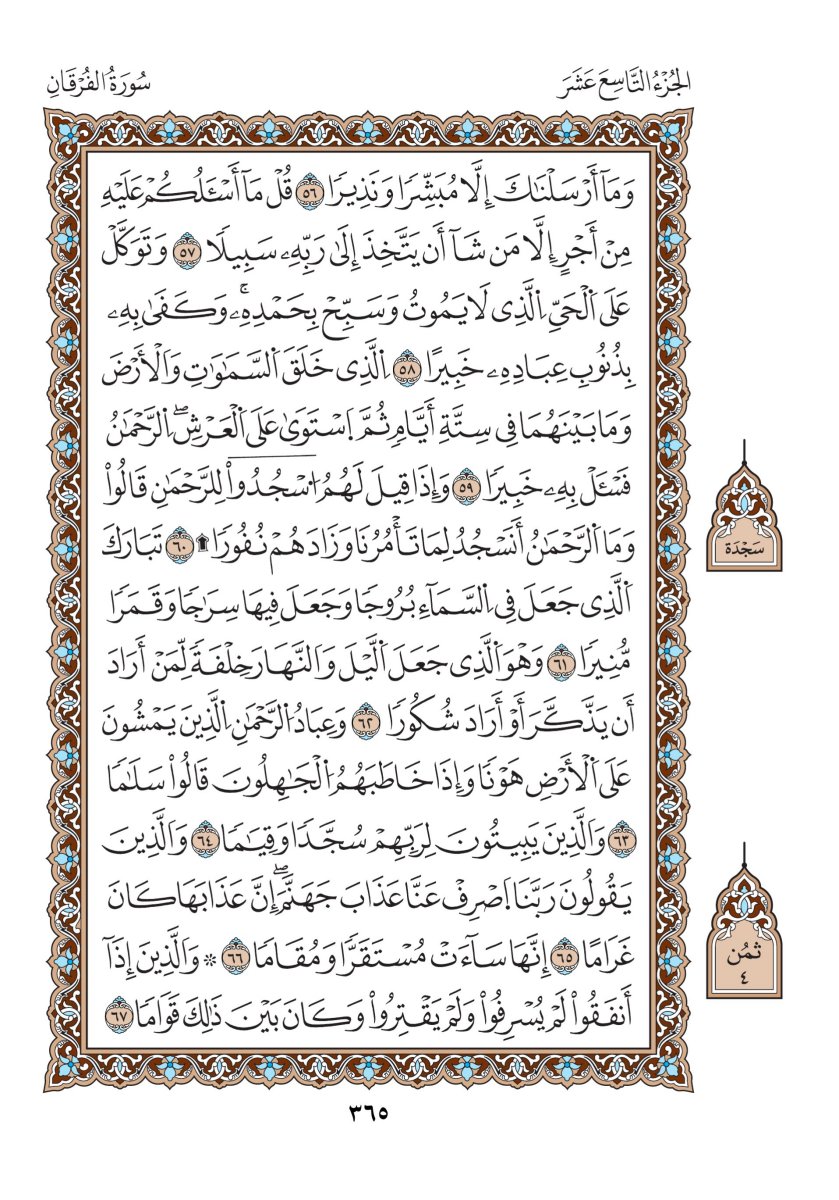 الجُزْءُ التَّاسِعَ عَشَرَ
سُورَةُ الفُرْقَانِ
وَمَآ أَرْسَلْنَٰكَ إِلَّا مُبَشِّرٗا وَنَذِيرٗا ٥٦ قُلْ مَآ أَسْـَٔلُكُمْ عَلَيْهِ
مِنْ أَجْرٍ إِلَّا مَن شَآ أَن يَتَّخِذَ إِلَىٰ رَبِّهِۦ سَبِيلٗا ٥٧ وَتَوَكَّلْ
عَلَى اَلْحَيِّ اِلَّذِى لَا يَمُوتُ وَسَبِّحْ بِحَمْدِهِۦۚ وَكَفَىٰ بِهِۦ
بِذُنُوبِ عِبَادِهِۦ خَبِيرًا ٥٨ اِلَّذِى خَلَقَ اَلسَّمَٰوَٰتِ وَالْأَرْضَ
وَمَا بَيْنَهُمَا فِى سِتَّةِ أَيَّامٖ ثُمَّ اَسْتَوَىٰ عَلَى اَلْعَرْشِۖ اِلرَّحْمَٰنُ
فَسْـَٔلْ بِهِۦ خَبِيرٗا ٥٩ وَإِذَا قِيلَ لَهُمُ اُسْجُدُواْ لِلرَّحْمَٰنِ قَالُواْ
وَمَا اَلرَّحْمَٰنُ أَنَسْجُدُ لِمَا تَأْمُرُنَا وَزَادَهُمْ نُفُورٗا ۩ ٦٠ تَبَارَكَ
اَلَّذِى جَعَلَ فِى اِلسَّمَآءِ بُرُوجٗا وَجَعَلَ فِيهَا سِرَٰجٗا وَقَمَرٗا
مُّنِيرٗا ٦١ وَهْوَ اَلَّذِى جَعَلَ اَلَّيْلَ وَالنَّهَارَ خِلْفَةٗ لِّمَنْ أَرَادَ
أَن يَذَّكَّرَ أَوْ أَرَادَ شُكُورٗا ٦٢ وَعِبَادُ اُلرَّحْمَٰنِ اِلَّذِينَ يَمْشُونَ
عَلَى اَلْأَرْضِ هَوْنٗا وَإِذَا خَاطَبَهُمُ اُلْجَٰهِلُونَ قَالُواْ سَلَٰمٗا
٦٣ وَالَّذِينَ يَبِيتُونَ لِرَبِّهِمْ سُجَّدٗا وَقِيَٰمٗا ٦٤ وَالَّذِينَ
يَقُولُونَ رَبَّنَا اَصْرِفْ عَنَّا عَذَابَ جَهَنَّمَۖ إِنَّ عَذَابَهَا كَانَ
غَرَامًا ٦٥ إِنَّهَا سَآءَتْ مُسْتَقَرّٗا وَمُقَامٗا ٦٦ ۞ وَالَّذِينَ إِذَآ
أَنفَقُواْ لَمْ يُسْرِفُواْ وَلَمْ يَقْتِرُواْ وَكَانَ بَيْنَ ذَٰلِكَ قَوَامٗا ٦٧
سَجْدَة
ثُمُن
٤
٣٦٥